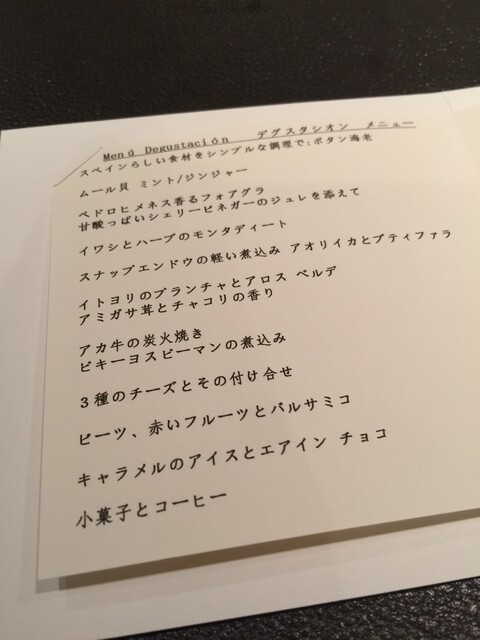 Menú Degustación デグスタシオン メニュー
スペインらしい食材をシンプルな調理で:ボタン海老
ムール貝 ミント/ジンジャー
ペドロヒメネス香るフォアグラ
甘酸っぱいシェリービネガーのジュレを添えて
イワシとハーブのモンタディート
スナップエンドウの軽い煮込み アオリイカとブティファラ
イトヨリのプランチャとアロス ベルデ
アミガサ茸とチャコリの香り
アカ牛の炭火焼き
ピキーヨスピーマンの煮込み
３種のチーズとその付け合せ
ビーツ、赤いフルーツとバルサミコ
キャラメルのアイスとエアイン チョコ
小菓子とコーヒー